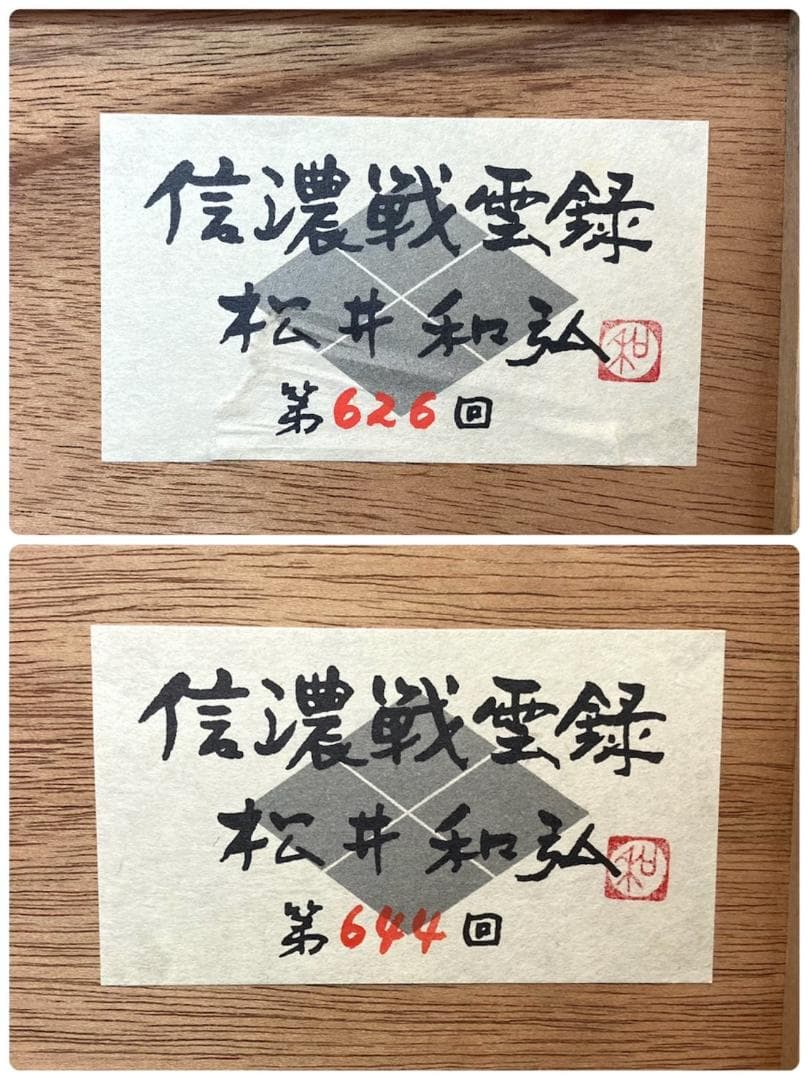 信濃戦雲録
松井和弘
和
第626回
信濃戦雲録
松井和弘
和
第644回